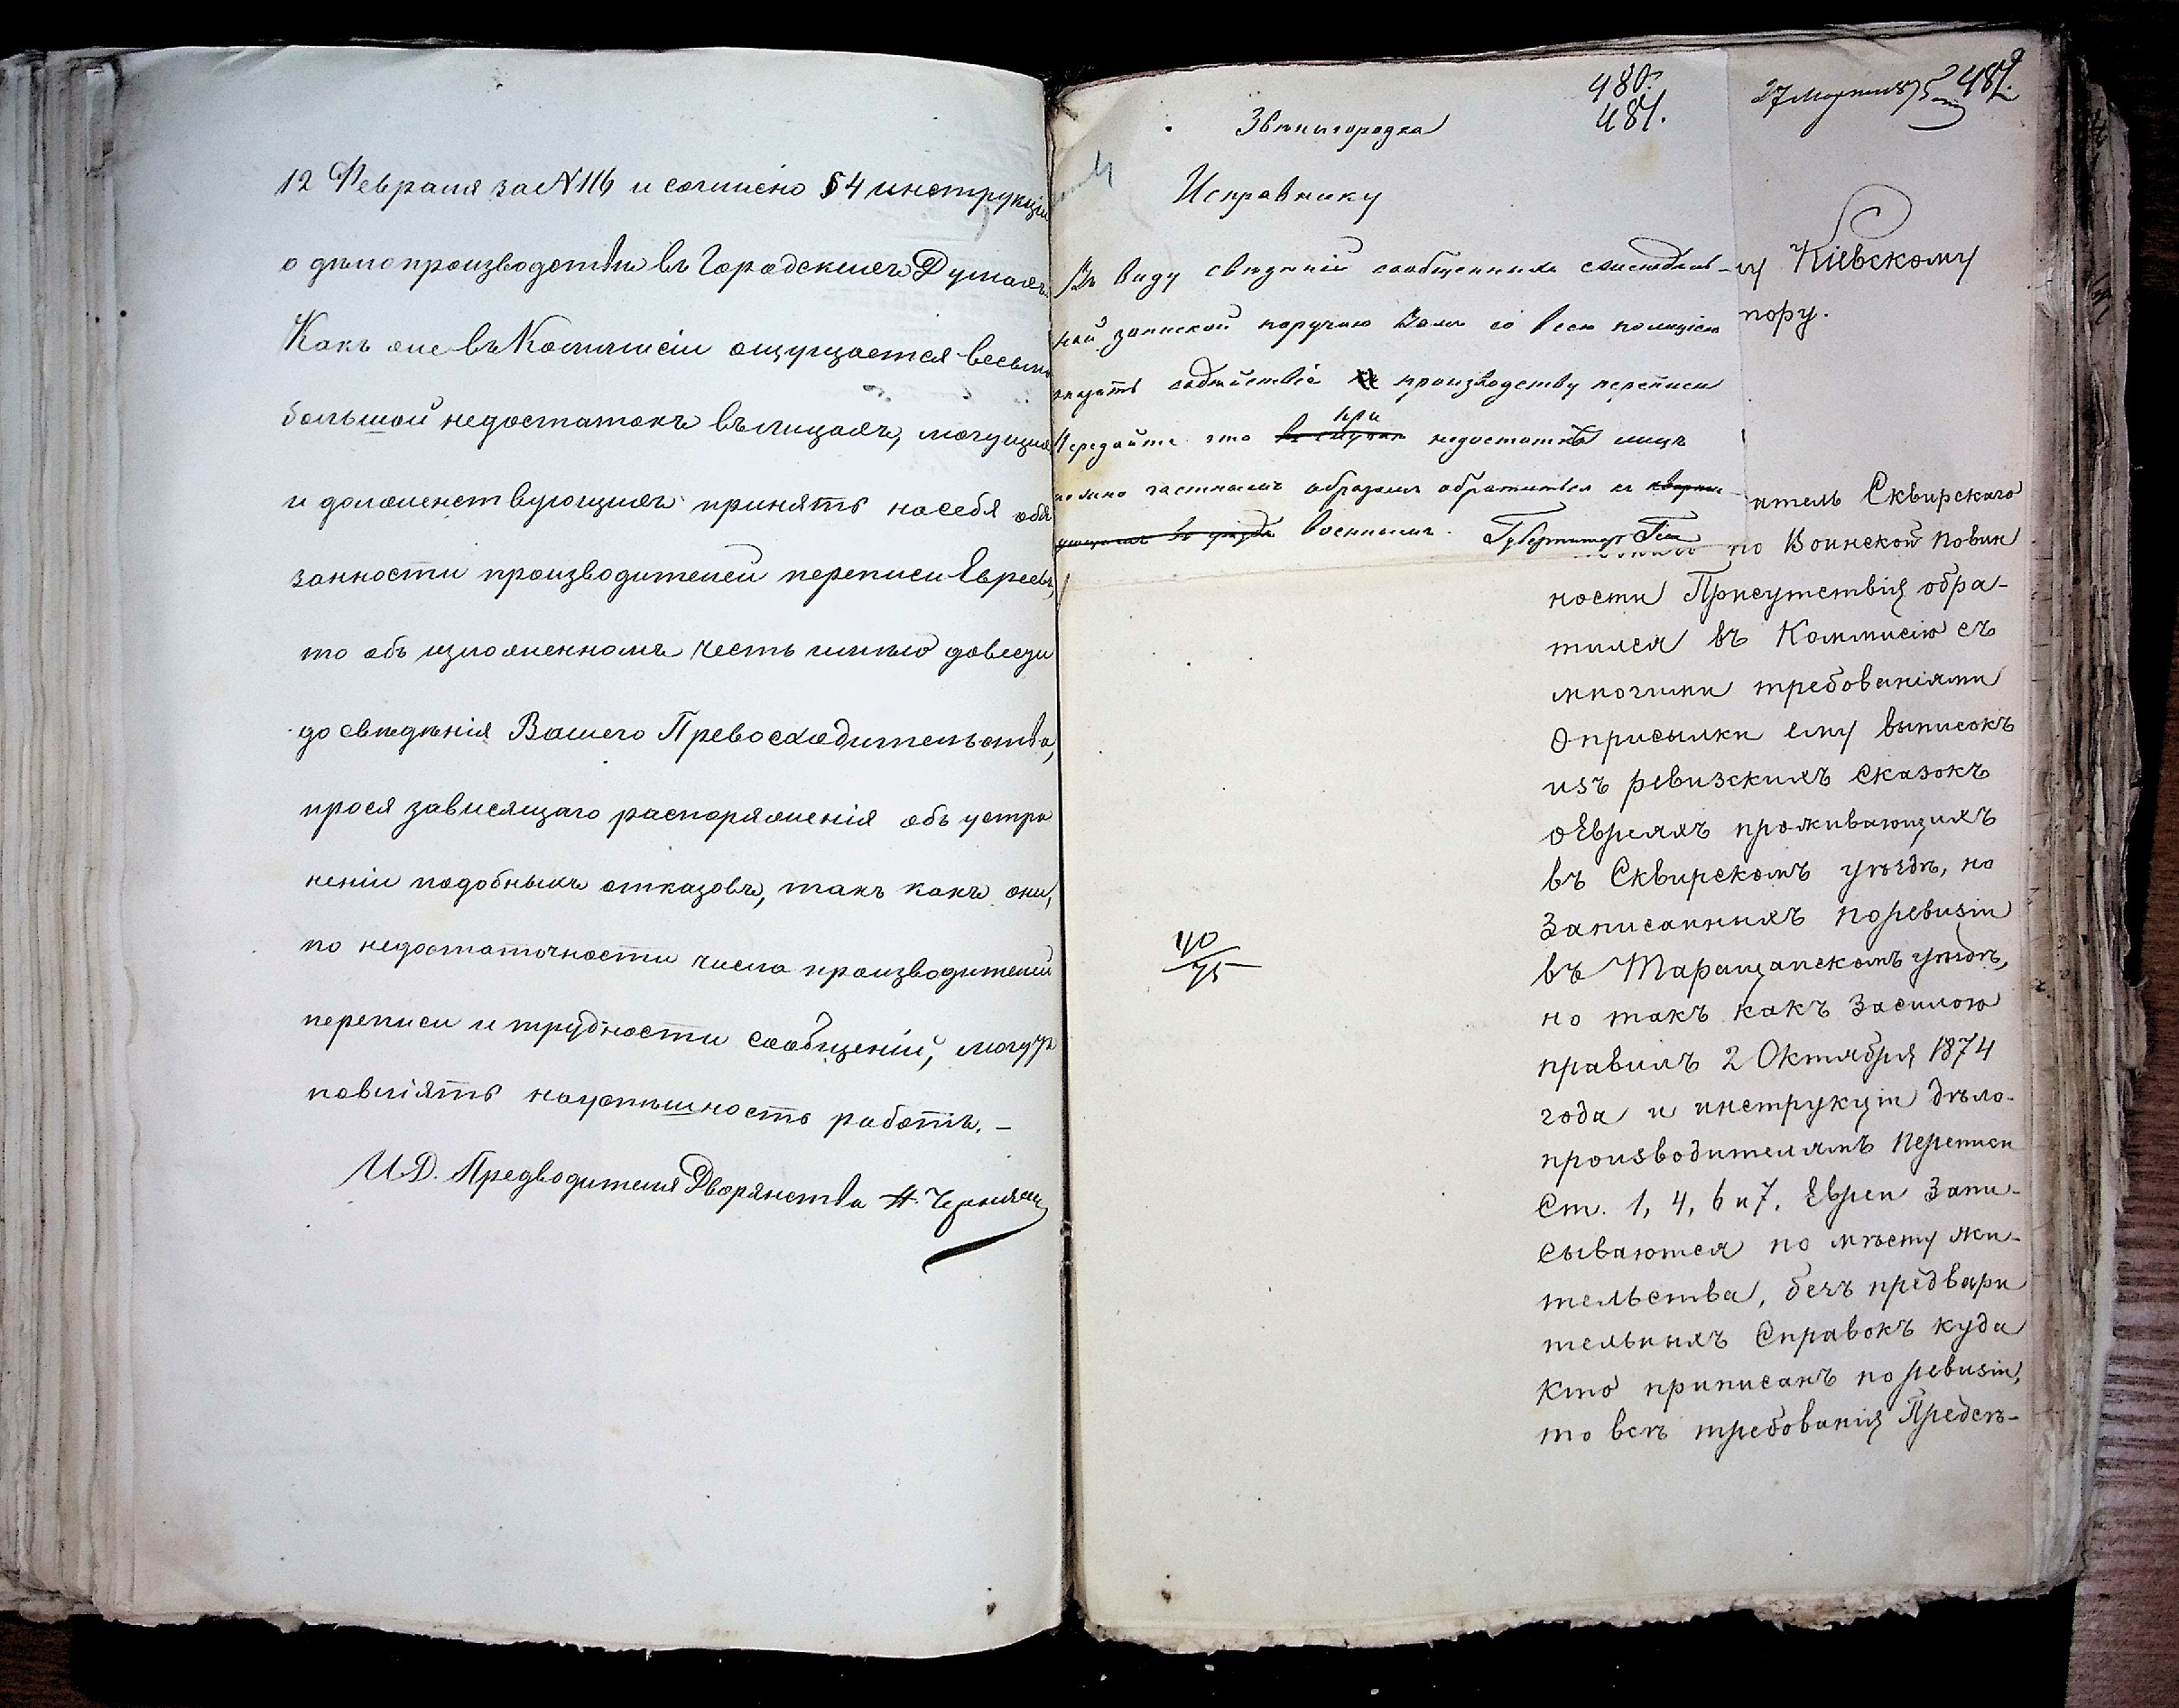 12 Февраля за № 116 и согласно § 4 инструкціи
о дѣлопроизводствѣ въ Городскихъ Думахъ.
Какъ же въ Коммисіи ощущается весьма
большой недостатокъ въ лицахъ, могущихъ
и долженствующихъ принять на себя обя
занности производителей переписи Евреевъ,
то объ изложенномъ честь имѣю довести
до свѣдѣнія Вашего Превосходительства,
прося зависящаго распоряженія объ устра
неніи подобныхъ отказовъ, такъ какъ они,
по недостаточности числа производителей
переписи и трудности сообщеній, могутъ
повліять на успѣшность работъ. —
И.Д. Предводителя Дворянства
480.
481.
Звенигородка
Исправнику
Въ виду свѣдѣній сообщенныхъ
ной запиской поручаю Вамъ со всею полиціею
оказать содѣйствіе производству переписи
Передайте что въ случаѣ при недостаткѣ лицъ
можно частнымъ образомъ обратиться къ
въ уѣздѣ военнымъ. Губернаторъ
40
75
27 Марта 875
482.
у Кіевскому
тору.
атель Сквирскаго
по Воинской Повин
ности Присутствія обра-
тился въ Коммисію съ
многими требованіями
о присылки ему выписокъ
изъ ревизскихъ сказокъ
о Евреяхъ проживающихъ
въ Сквирскомъ уѣздѣ, но
записанныхъ по ревизіи
въ Таращанскомъ уѣздѣ,
но такъ какъ за силою
правилъ 2 Октября 1874
года и инструкціи дѣло-
производителямъ переписи
ст. 1, 4, 6 и 7, Евреи запи-
сываются по мѣсту жи-
тельства, безъ предвари
тельныхъ справокъ куда
кто приписанъ по ревизіи,
то всѣ требованія Предсѣ-